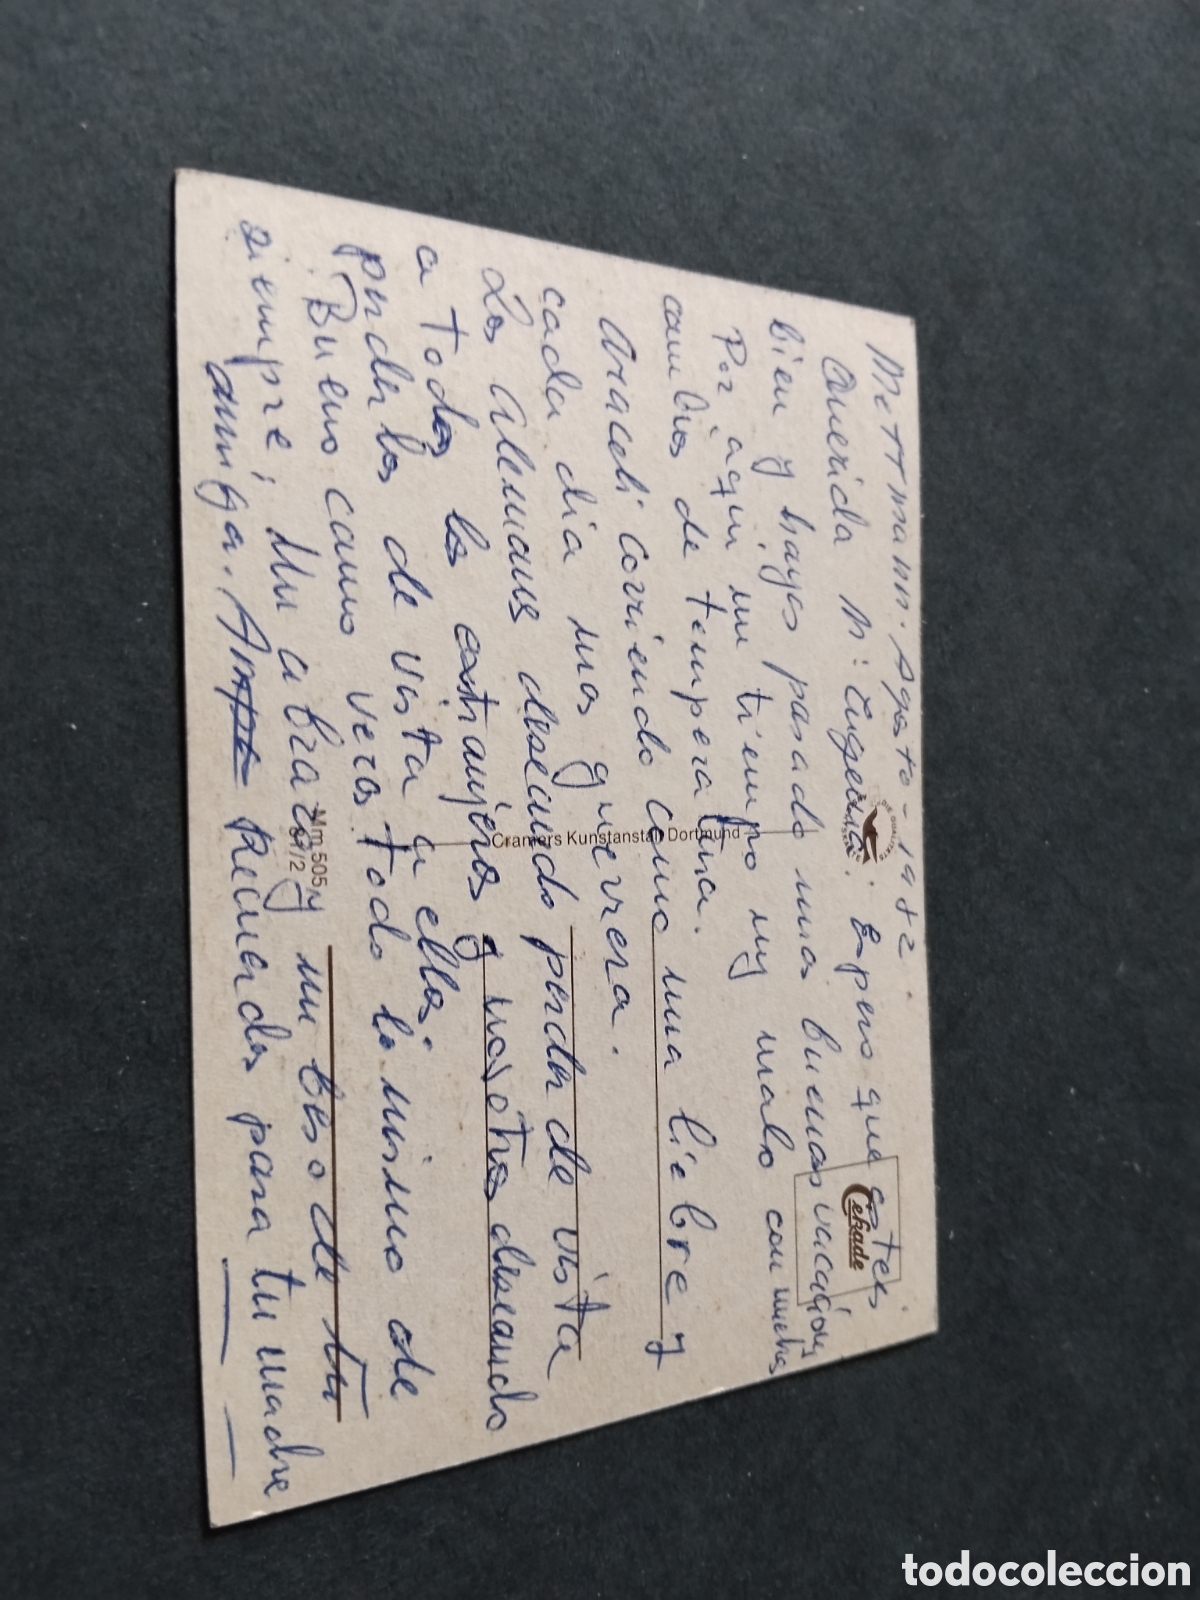 Mettmann. Agosto - 1982.
Querida Mª Eugenia: Espero que estes
bien y hayas pasado unas buenas vacaciones
Por aqui un tiempo muy malo con muchos
cambios de temperatura.
Araceli corriendo como una liebre y
cada dia mas guerrera.
Los alemanes deseando perder de vista
a todos los extranjeros y nosotros deseando
perderlos de vista a ellos,
Bueno como veras todo lo mismo de
siempre; Un abrazo y un beso de tu
amiga. Recuerdos para tu madre
Cramers Kunstanstalt Dortmund
Mm 505
Cekade
todocoleccion